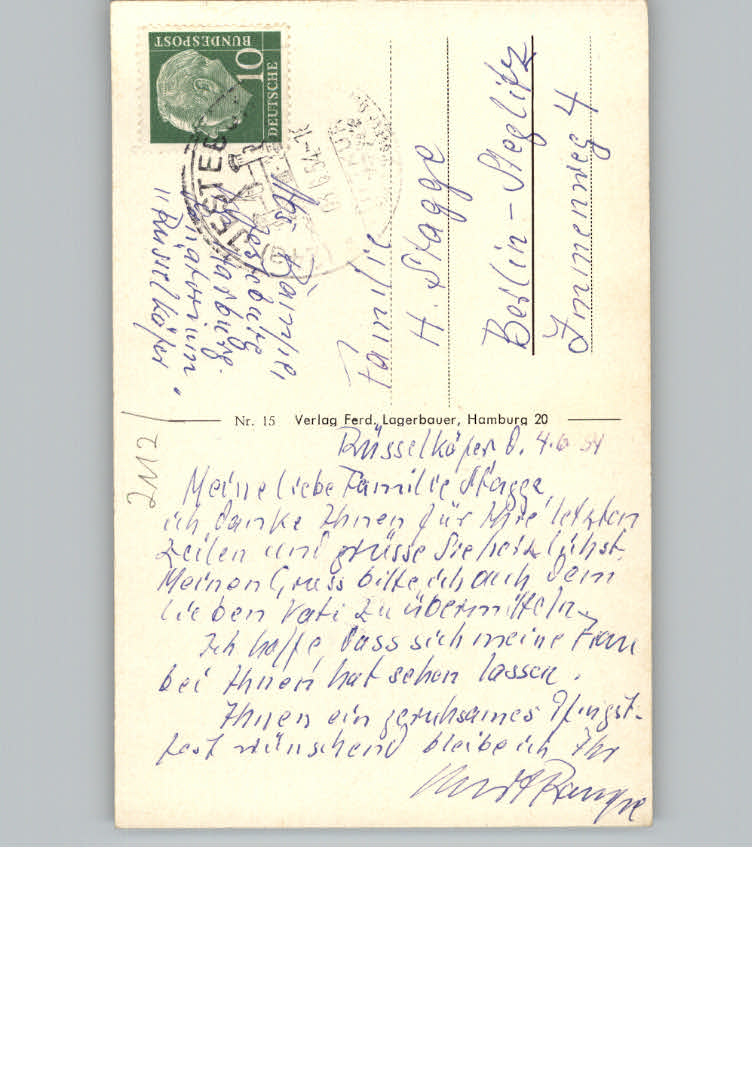 DEUTSCHE
BUNDESPOST
10
JESTEB
Abs.
Jestebúrg
Harburg.
"Rüsselkäfer
Familie
H. Stagge
Berlin-Steglitz
Immenweg 4
Nr. 15 Verlag Ferd. Lagerbauer, Hamburg 20
2112/
Rüsselkäfer d. 4.6 54
Meine liebe Familie Stagge,
ich danke Ihnen für Ihre letzten
Zeilen und grüsse Sie herzlichst.
Meinen Gruss bitte ich auch dem
lieben Vati zu übermitteln.
Ich hoffe, dass sich meine Frau
bei Ihnen hat sehen lassen.
Ihnen ein geruhsames Pfingst-
fest wünschend bleibe ich Ihr